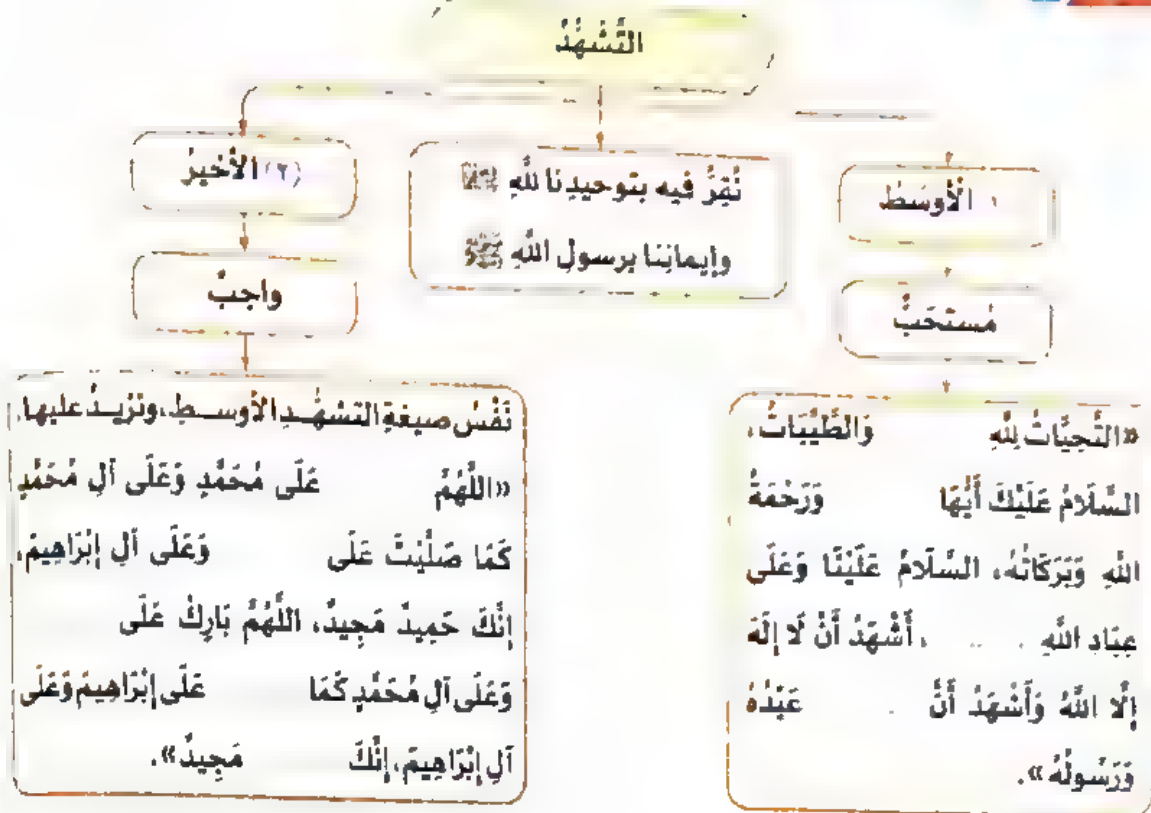 التَّشَهُّدُ
١ الْأَوسَطُ
مُستَحَبٌّ
«التَّحِيَّاتُ لِلَّهِ وَالطَّيِّبَاتُ،
السَّلَامُ عَلَيْكَ أَيُّهَا وَرَحْمَةُ
اللَّهِ وَبَرَكَاتُهُ، السَّلَامُ عَلَيْنَا وَعَلَى
عِبَادِ اللَّهِ . ... ، أَشْهَدُ أَنْ لَا إِلَهَ
إِلَّا اللَّهُ وَأَشْهَدُ أَنَّ . عَبْدُهُ
وَرَسُولُهُ».
نُقِرُّ فيه بتوحيدِنا للَّهِ
وإيمانِنا برسولِ اللَّهِ ﷺ
(٢) الأَخيرُ
واجبٌ
نَفْسُ صيغةِ التشهُّدِ الأوسطِ، ونَزيدُ عليها،
«اللَّهُمَّ عَلَى مُحَمَّدٍ وَعَلَى آلِ مُحَمَّدٍ
كَمَا صَلَّيْتَ عَلَى وَعَلَى آلِ إِبْرَاهِيمَ،
إِنَّكَ حَمِيدٌ مَجِيدٌ، اللَّهُمَّ بَارِكْ عَلَى
وَعَلَى آلِ مُحَمَّدٍ كَمَا عَلَى إِبْرَاهِيمَ وَعَلَى
آلِ إِبْرَاهِيمَ، إِنَّكَ مَجِيدٌ».